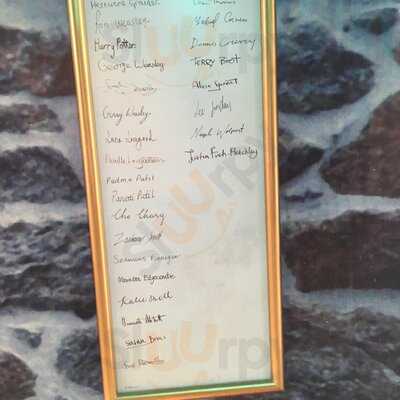 Hermione Granger
Ron Weasley
Harry Potter
George Weasley
Fred Weasley
Ginny Weasley
Luna Lovegood
Neville Longbottom
Padma Patil
Parvati Patil
Cho Chang
Zacharias Smith
Seamus Finnigan
Marietta Edgecombe
Katie Bell
Hannah Abbott
Susan Bones
Dean Thomas
Michael Corner
Dennis Creevey
Terry Boot
Alicia Spinnet
Lee Jordan
Nigel Wolpert
Justin Finch-Fletchley
Sluurpy